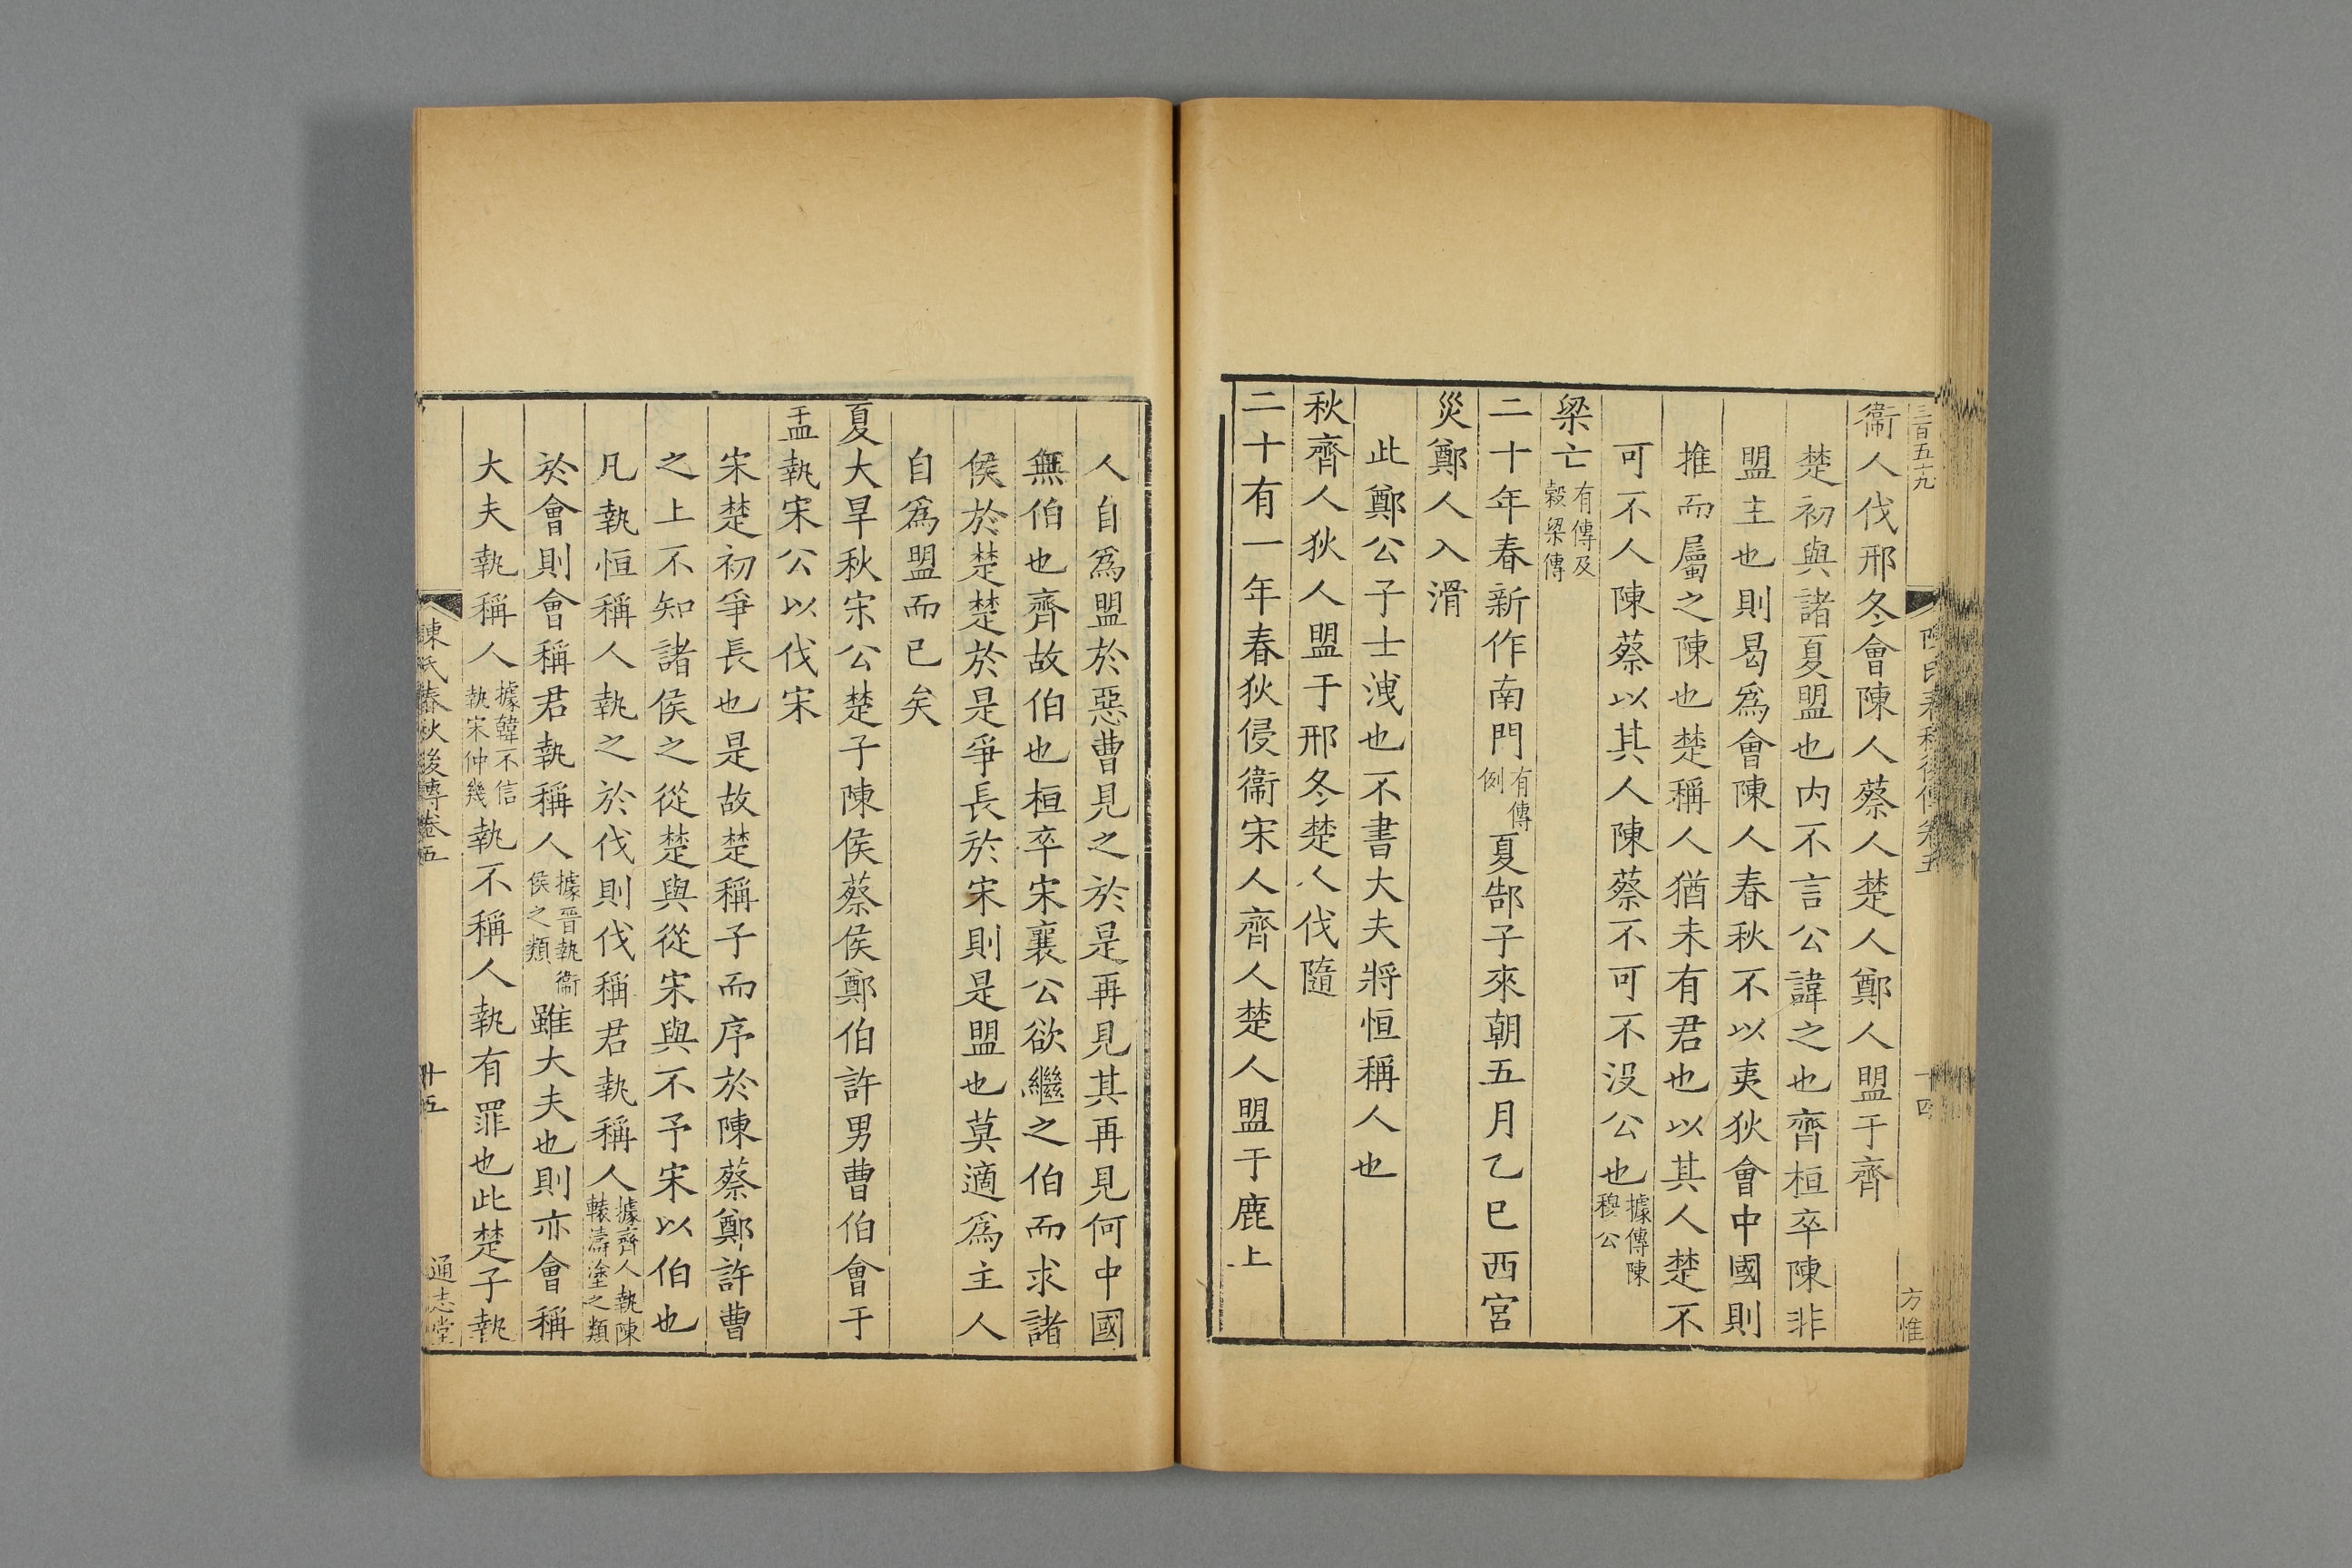 三百五十九
陳氏春秋後傳卷五
十四
方惟
衞人伐邢冬會陳人蔡人楚人鄭人盟于齊
楚初與諸夏盟也内不言公諱之也齊桓卒陳非
盟主也則曷爲會陳人春秋不以夷狄會中國則
推而屬之陳也楚稱人猶未有君也以其人楚不
可不人陳蔡以其人陳蔡不可不没公也據傳陳穆公
梁亡有傳及穀梁傳
二十年春新作南門有傳例夏郜子來朝五月乙巳西宮
災鄭人入滑
此鄭公子士洩也不書大夫將恒稱人也
秋齊人狄人盟于邢冬楚人伐隨
二十有一年春狄侵衞宋人齊人楚人盟于鹿上
人自爲盟於惡曹見之於是再見其再見何中國
無伯也齊故伯也桓卒宋襄公欲繼之伯而求諸
侯於楚楚於是爭長於宋則是盟也莫適爲主人
自爲盟而已矣
夏大旱秋宋公楚子陳侯蔡侯鄭伯許男曹伯會于
盂執宋公以伐宋
宋楚初爭長也是故楚稱子而序於陳蔡鄭許曹
之上不知諸侯之從楚與從宋與不予宋以伯也
凡執恒稱人執之於伐則伐稱君執稱人據齊人執陳轅濤塗之類
於會則會稱君執稱人據晉執衞侯之類雖大夫也則亦會稱
大夫執稱人據韓不信執宋仲幾執不稱人執有罪也此楚子執
陳氏春秋後傳卷五
十五
通志堂